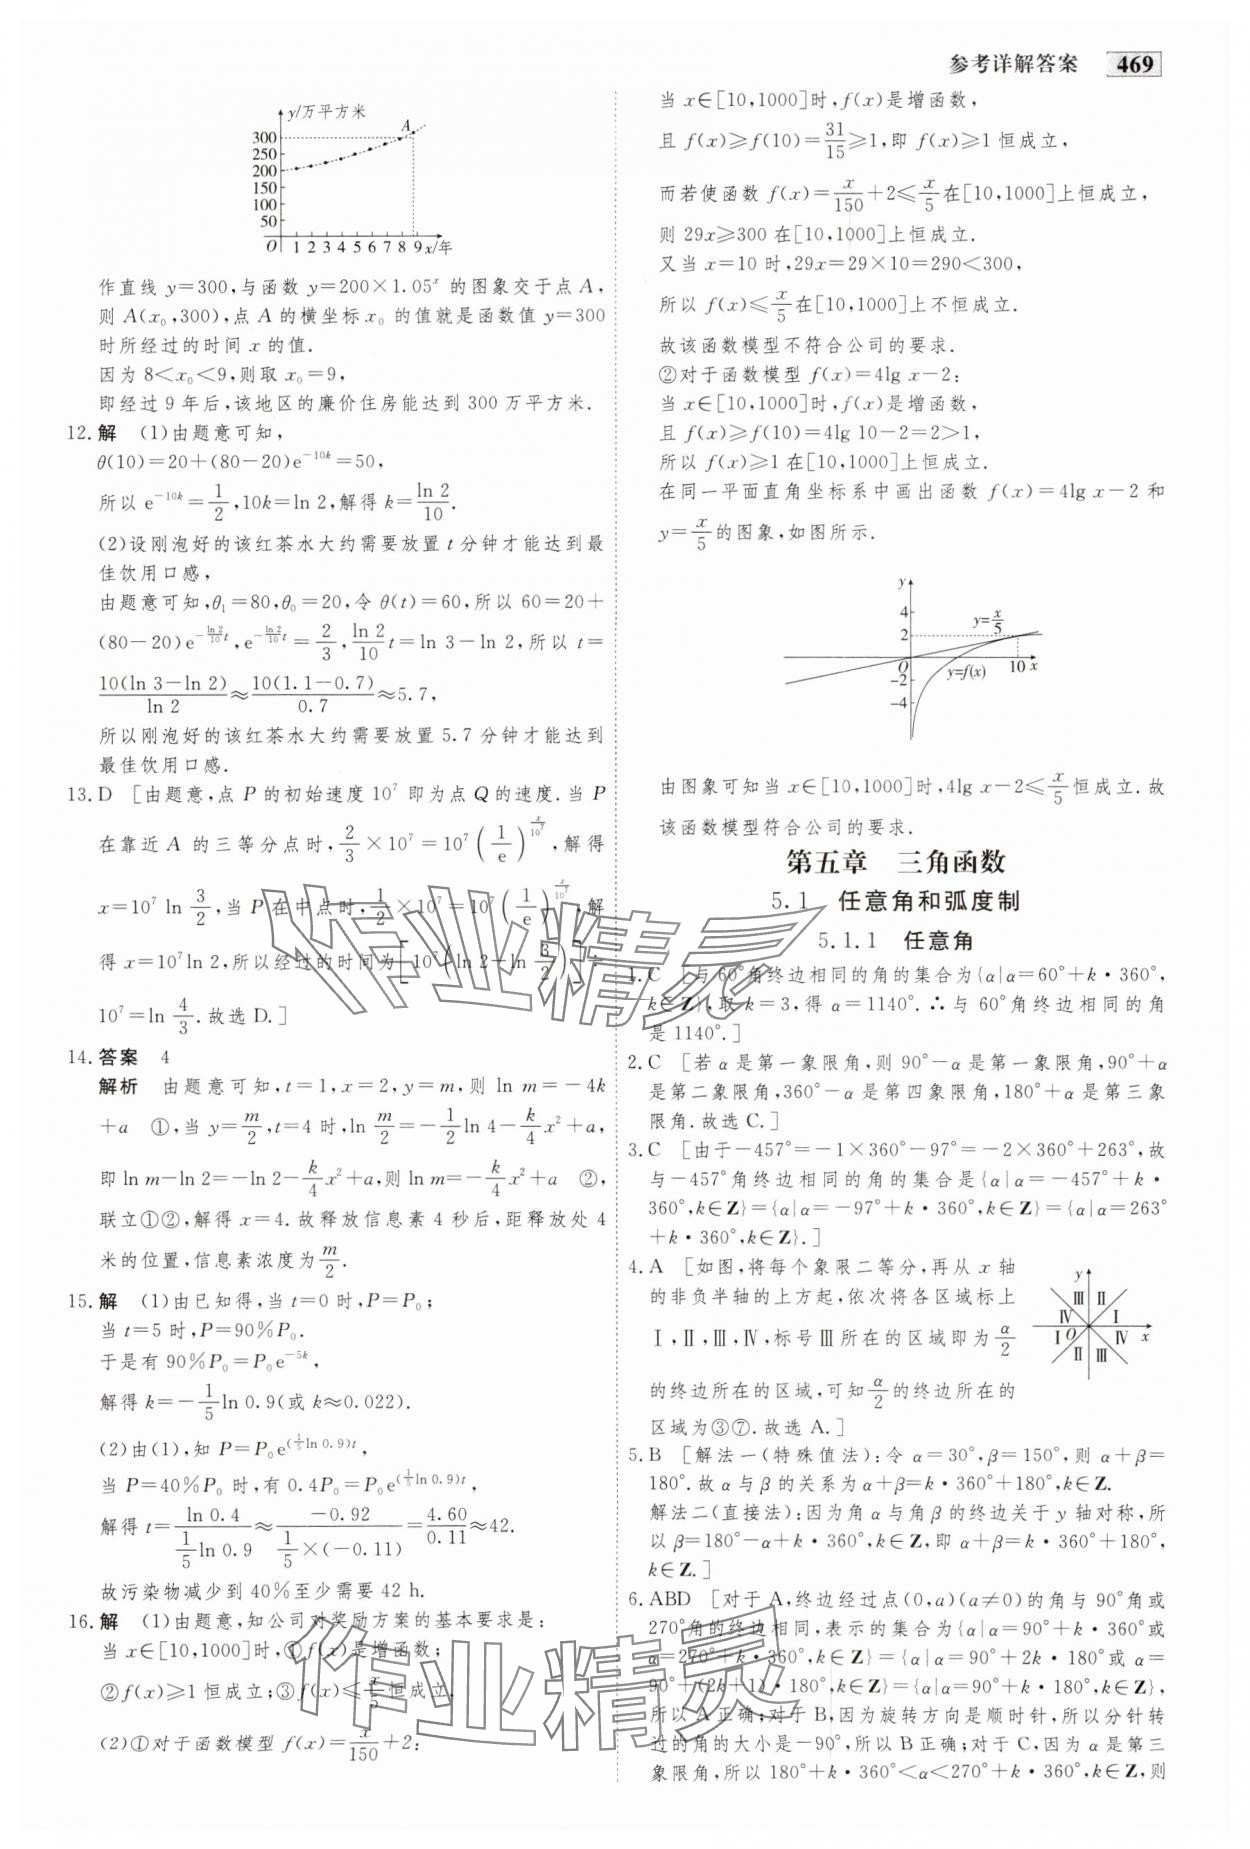 参考详解答案 469
y/万平方米
A
300
250
200
150
100
50
O 1 2 3 4 5 6 7 8 9 x/年
作直线 y=300,与函数 y=200×1.05^x 的图象交于点 A,
则 A(x₀,300),点 A 的横坐标 x₀ 的值就是函数值 y=300
时所经过的时间 x 的值.
因为 8<x₀<9,则取 x₀=9,
即经过 9 年后,该地区的廉价住房能达到 300 万平方米.
12.解 (1)由题意可知,
θ(10)=20+(80-20)e^{-10k}=50,
所以 e^{-10k}=1/2,10k=ln 2,解得 k=ln 2/10.
(2)设刚泡好的该红茶水大约需要放置 t 分钟才能达到最
佳饮用口感,
由题意可知,θ₁=80,θ₀=20,令 θ(t)=60,所以 60=20+
(80-20)e^{-(ln 2/10)t},e^{-(ln 2/10)t}=2/3,(ln 2/10)t=ln 3-ln 2,所以 t=
10(ln 3-ln 2)/ln 2≈10(1.1-0.7)/0.7≈5.7,
所以刚泡好的该红茶水大约需要放置 5.7 分钟才能达到
最佳饮用口感.
13.D [由题意,点 P 的初始速度 10⁷ 即为点 Q 的速度.当 P
在靠近 A 的三等分点时,2/3×10⁷=10⁷(1/e)^{x/10⁷},解得
x=10⁷ ln 3/2,当 P 在中点时,1/2×10⁷=10⁷(1/e)^{x/10⁷},解
得 x=10⁷ln 2,所以经过的时间为[10⁷(ln 2-ln 3/2)]÷
10⁷=ln 4/3.故选 D.]
14.答案 4
解析 由题意可知,t=1,x=2,y=m,则 ln m=-4k
+a ①,当 y=m/2,t=4 时,ln m/2=-1/2 ln 4-k/4 x²+a,
即 ln m-ln 2=-ln 2-k/4 x²+a,则 ln m=-k/4 x²+a ②,
联立①②,解得 x=4.故释放信息素 4 秒后,距释放处 4
米的位置,信息素浓度为 m/2.
15.解 (1)由已知得,当 t=0 时,P=P₀;
当 t=5 时,P=90%P₀.
于是有 90%P₀=P₀e^{-5k},
解得 k=-1/5 ln 0.9(或 k≈0.022).
(2)由(1),知 P=P₀e^{(1/5 ln 0.9)t},
当 P=40%P₀ 时,有 0.4P₀=P₀e^{(1/5 ln 0.9)t},
解得 t=ln 0.4/(1/5 ln 0.9)≈-0.92/(1/5×(-0.11))=4.60/0.11≈42.
故污染物减少到 40%至少需要 42 h.
16.解 (1)由题意,知公司对奖励方案的基本要求是:
当 x∈[10,1000]时,①f(x)是增函数;
②f(x)≥1 恒成立;③f(x)≤x/5 恒成立.
(2)①对于函数模型 f(x)=x/150+2:
当 x∈[10,1000]时,f(x)是增函数,
且 f(x)≥f(10)=31/15≥1,即 f(x)≥1 恒成立,
而若使函数 f(x)=x/150+2≤x/5 在[10,1000]上恒成立,
则 29x≥300 在[10,1000]上恒成立.
又当 x=10 时,29x=29×10=290<300,
所以 f(x)≤x/5 在[10,1000]上不恒成立.
故该函数模型不符合公司的要求.
②对于函数模型 f(x)=4lg x-2:
当 x∈[10,1000]时,f(x)是增函数,
且 f(x)≥f(10)=4lg 10-2=2>1,
所以 f(x)≥1 在[10,1000]上恒成立.
在同一平面直角坐标系中画出函数 f(x)=4lg x-2 和
y=x/5 的图象,如图所示.
y
4
2
y=x/5
O
10 x
-2
y=f(x)
-4
由图象可知当 x∈[10,1000]时,4lg x-2≤x/5 恒成立.故
该函数模型符合公司的要求.
第五章 三角函数
5.1 任意角和弧度制
5.1.1 任意角
1.C [与 60°角终边相同的角的集合为{α|α=60°+k·360°,
k∈Z},取 k=3,得 α=1140°.∴与 60°角终边相同的角
是 1140°.]
2.C [若 α 是第一象限角,则 90°-α 是第一象限角,90°+α
是第二象限角,360°-α 是第四象限角,180°+α 是第三象
限角.故选 C.]
3.C [由于-457°=-1×360°-97°=-2×360°+263°,故
与-457°角终边相同的角的集合是{α|α=-457°+k·
360°,k∈Z}={α|α=-97°+k·360°,k∈Z}={α|α=263°
+k·360°,k∈Z}.]
4.A [如图,将每个象限二等分,再从 x 轴
的非负半轴的上方起,依次将各区域标上
Ⅰ,Ⅱ,Ⅲ,Ⅳ,标号Ⅲ所在的区域即为 α/2
的终边所在的区域,可知 α/2 的终边所在的
区域为③⑦.故选 A.]
y
Ⅲ Ⅱ
Ⅳ Ⅰ
Ⅰ O Ⅳ x
Ⅱ Ⅲ
5.B [解法一(特殊值法):令 α=30°,β=150°,则 α+β=
180°.故 α 与 β 的关系为 α+β=k·360°+180°,k∈Z.
解法二(直接法):因为角 α 与角 β 的终边关于 y 轴对称,所
以 β=180°-α+k·360°,k∈Z,即 α+β=k·360°+180°,
k∈Z.]
6.ABD [对于 A,终边经过点(0,a)(a≠0)的角与 90°角或
270°角的终边相同,表示的集合是{α|α=90°+k·360°或
α=270°+k·360°,k∈Z}={α|α=90°+2k·180°或 α=
90°+(2k+1)·180°,k∈Z}={α|α=90°+k·180°,k∈Z},
所以 A 正确;对于 B,因为旋转方向是顺时针,所以分针转
过的角的大小是-90°,所以 B 正确;对于 C,因为 α 是第三
象限角,所以 180°+k·360°<α<270°+k·360°,k∈Z,则
作业精灵
作业精灵